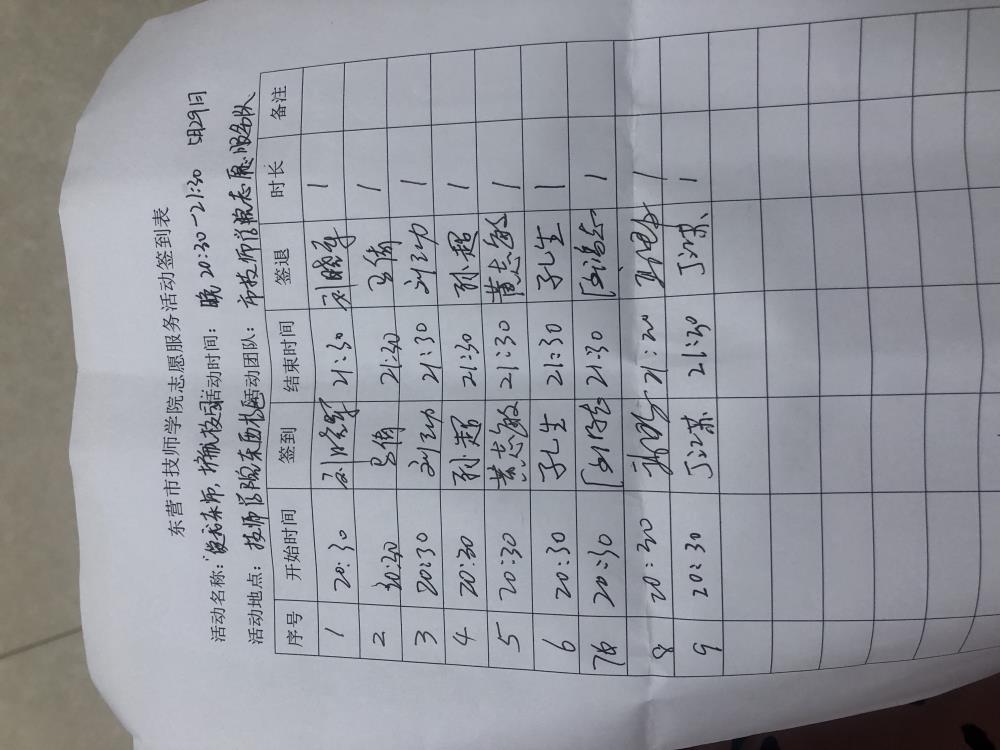 东营市技师学院志愿服务活动签到表
活动名称: 护航校园 活动时间: 晚20:30-21:30 5月29日
活动地点: 技师学院东西校 活动团队: 市技师学院志愿服务队
序号 开始时间 签到 结束时间 签退 时长 备注
1 20:30 刘晓军 21:30 刘晓军 1
2 20:30 21:30 1
3 20:30 21:30 1
4 20:30 孙超 21:30 孙超 1
5 20:30 黄志敏 21:30 黄志敏 1
6 20:30 孔生 21:30 孔生 1
7 20:30 21:30 1
8 20:30 21:20 1
9 20:30 丁江苏 21:30 丁江苏 1